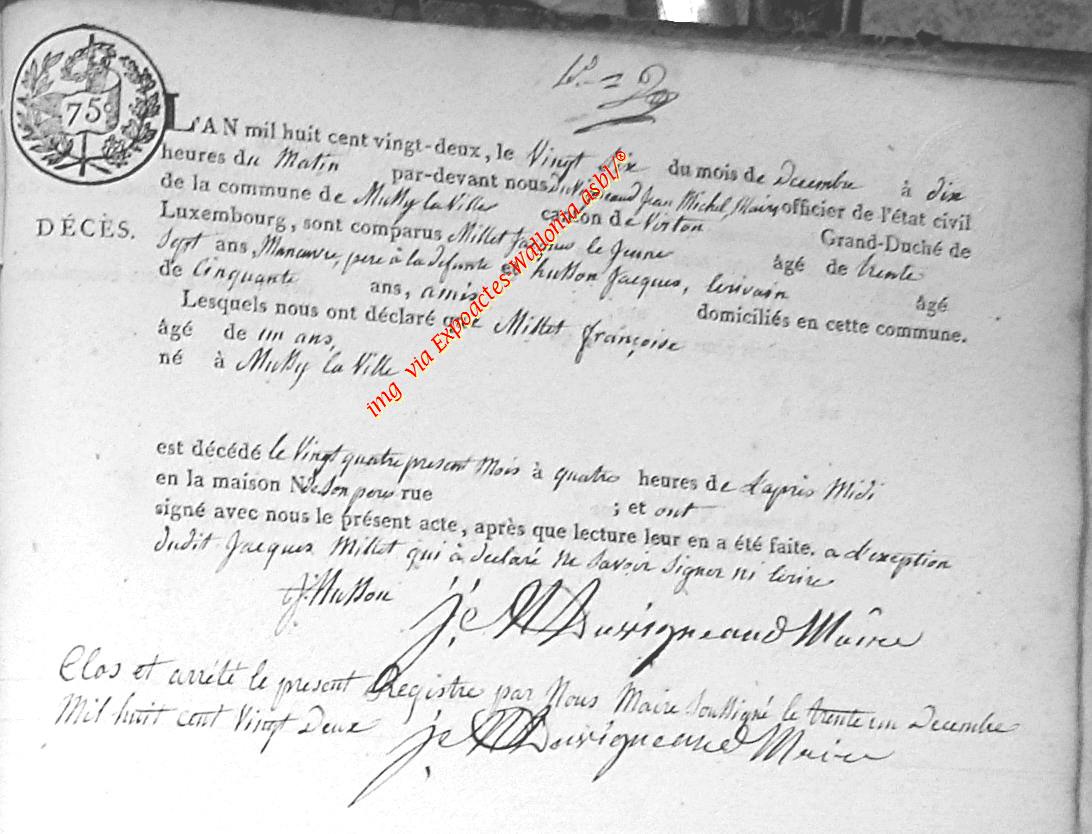 75c
L'AN mil huit cent vingt-deux, le Vingt six du mois de Decembre à dix
heures du Matin par-devant nous Duvigneaud Jean Michel, Maire officier de l'état civil
de la commune de Mussy la Ville canton de Virton Grand-Duché de
DÉCÈS.
Luxembourg, sont comparus Millet Jacques le Jeune âgé de trente
Sept ans, Manoeuvre, pere à la defunte et husson Jacques, Ecrivain âgé
de Cinquante ans, amis domiciliés en cette commune.
Lesquels nous ont déclaré que Millet françoise
âgé de un ans,
né à Mussy la Ville
est décédé le Vingt quatre present Mois à quatre heures de L'après Midi
en la maison N de son pere rue ; et ont
signé avec nous le présent acte, après que lecture leur en a été faite. a L'exception
dudit Jacques Millet qui à declaré ne savoir Signer ni Ecrire
J. Husson
J. M Duvigneaud Maire
Clos et arrêté le present Registre par Nous Maire Soussigné le trente un Decembre
Mil huit cent Vingt Deux J. M Duvigneaud Maire
img via Expoactes Wallonia asbl/©